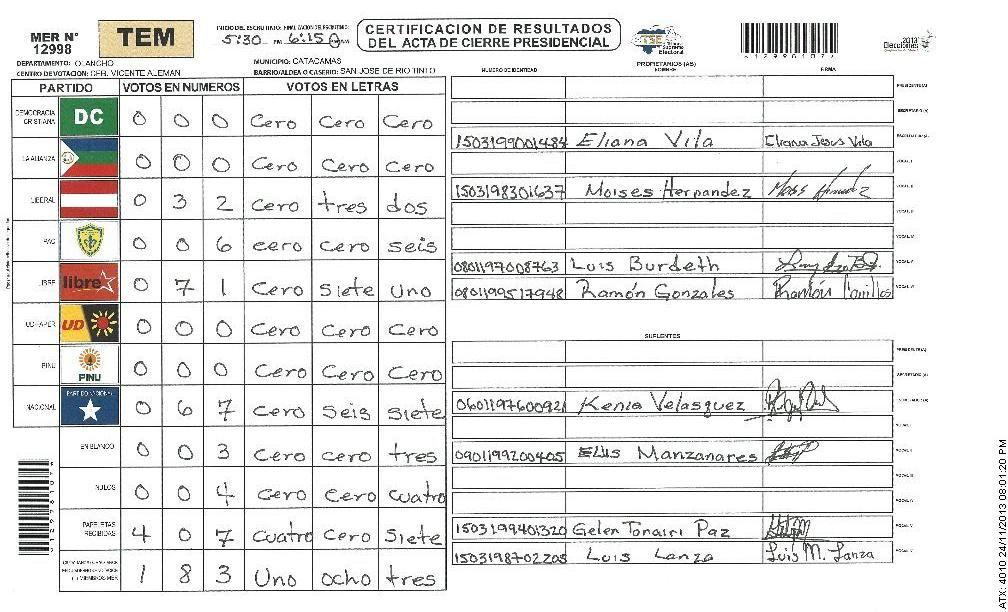 MER N° 12998
TEM
INICIO DEL ESCRUTINIO: FINALIZACION DEL ESCRUTINIO:
5:30 PM 6:150
CERTIFICACION DE RESULTADOS
DEL ACTA DE CIERRE PRESIDENCIAL
TSE
Supremo
Electoral
2013
Elecciones
DEPARTAMENTO: OLANCHO
MUNICIPIO: CATACAMAS
CENTRO DE VOTACION: CEB. VICENTE ALEMAN
BARRIO/ALDEA O CASERIO: SAN JOSE DE RIO TINTO
PARTIDO VOTOS EN NUMEROS VOTOS EN LETRAS
DEMOCRACIA CRISTIANA DC 0 0 0 Cero Cero Cero
LA ALIANZA 0 0 0 Cero Cero Cero
LIBERAL 0 3 2 Cero tres dos
PAC 0 0 6 cero cero seis
LIBRE libre 0 7 1 Cero siete uno
UD-FAPER UD 0 0 0 Cero Cero Cero
PINU PINU 0 0 0 Cero Cero Cero
NACIONAL PARTIDO NACIONAL 0 6 7 Cero Seis Siete
EN BLANCO 0 0 3 Cero cero tres
NULOS 0 0 4 Cero Cero Cuatro
PAPELETAS RECIBIDAS 4 0 7 Cuatro Cero Siete
1 8 3 Uno ocho tres
PROPIETARIOS (AS)
NUMERO DE IDENTIDAD NOMBRE FIRMA
PRESIDENTE(A)
SECRETARIO(A)
1503199001484 Eliana Vila Eliana Jesus Vila ESCRUTADOR(A)
VOCAL I
1503198301637 Moises Hernandez VOCAL II
VOCAL III
VOCAL IV
0801197008763 Luis Burdeth VOCAL V
0801199517948 Ramón Gonzales Ramón VOCAL VI
SUPLENTES
PRESIDENTE(A)
SECRETARIO(A)
0601197600921 Kenia Velasquez ESCRUTADOR(A)
VOCAL I
0901199200405 Elias Manzanares VOCAL II
VOCAL III
VOCAL IV
1503199401320 Gelen Tonairi Paz VOCAL V
1503198702205 Luis Lanza Luis M. Lanza VOCAL VI
ATX: 4010 24/11/2013 08:01:20 PM